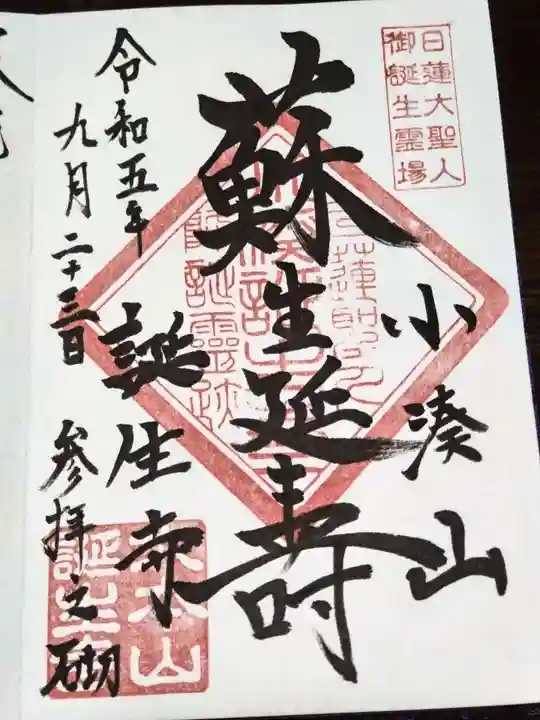 日蓮大聖人
御誕生霊場
小湊山
蘇生延壽
誕生寺
令和五年
九月二十三日
参拝之砌
大本山
誕生寺